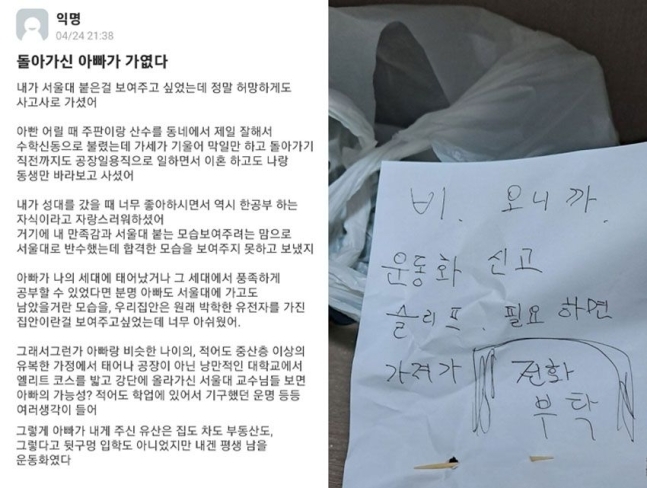 익명
04/24 21:38
돌아가신 아빠가 가엾다
내가 서울대 붙은걸 보여주고 싶었는데 정말 허망하게도
사고사로 가셨어
아빤 어릴 때 주판이랑 산수를 동네에서 제일 잘해서
수학신동으로 불렸는데 가세가 기울어 막일만 하고 돌아가기
직전까지도 공장일용직으로 일하면서 이혼 하고도 나랑
동생만 바라보고 사셨어
내가 성대를 갔을 때 너무 좋아하시면서 역시 한공부 하는
자식이라고 자랑스러워하셨어
거기에 내 만족감과 서울대 붙는 모습보여주려는 맘으로
서울대로 반수했는데 합격한 모습을 보여주지 못하고 보냈지
아빠가 나의 세대에 태어났거나 그 세대에서 풍족하게
공부할 수 있었다면 분명 아빠도 서울대에 가고도
남았을거란 모습을, 우리집안은 원래 박학한 유전자를 가진
집안이란걸 보여주고싶었는데 너무 아쉬웠어.
그래서그런가 아빠랑 비슷한 나이의, 적어도 중산층 이상의
유복한 가정에서 태어나 공장이 아닌 낭만적인 대학교에서
엘리트 코스를 밟고 강단에 올라가신 서울대 교수님들 보면
아빠의 가능성? 적어도 학업에 있어서 기구했던 운명 등등
여러생각이 들어
그렇게 아빠가 내게 주신 유산은 집도 차도 부동산도,
그렇다고 뒷구멍 입학도 아니었지만 내겐 평생 남을
운동화였다
비. 오니까.
운동화 신고
슬리프. 필요하면
가져가 전화
부탁